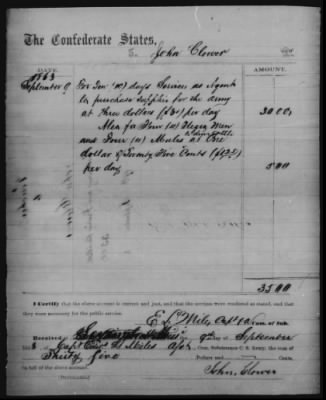 The Confederate States,
To John Clower Dr.
DATE. AMOUNT.
1863
September 9 For Ten (10) days Services as Agent
to purchase supplies for the army
at Three dollars ($3) per day 30 00
Also for Four (4) Negro Men
and Four (4) Mules at One
dollar & Twenty Five Cents
per day 5 00
35 00
I Certify that the above account is correct and just, and that the services were rendered as stated, and that
they were necessary for the public service.
E L Miles Capt & A Com. of Sub.
Received 9th September
186 3 of Capt Miles Com. Subsistence C. S. Army, the sum of
Thirty Five Dollars and Cents,
in full of the above account.
[DUPLICATE.] John Clower